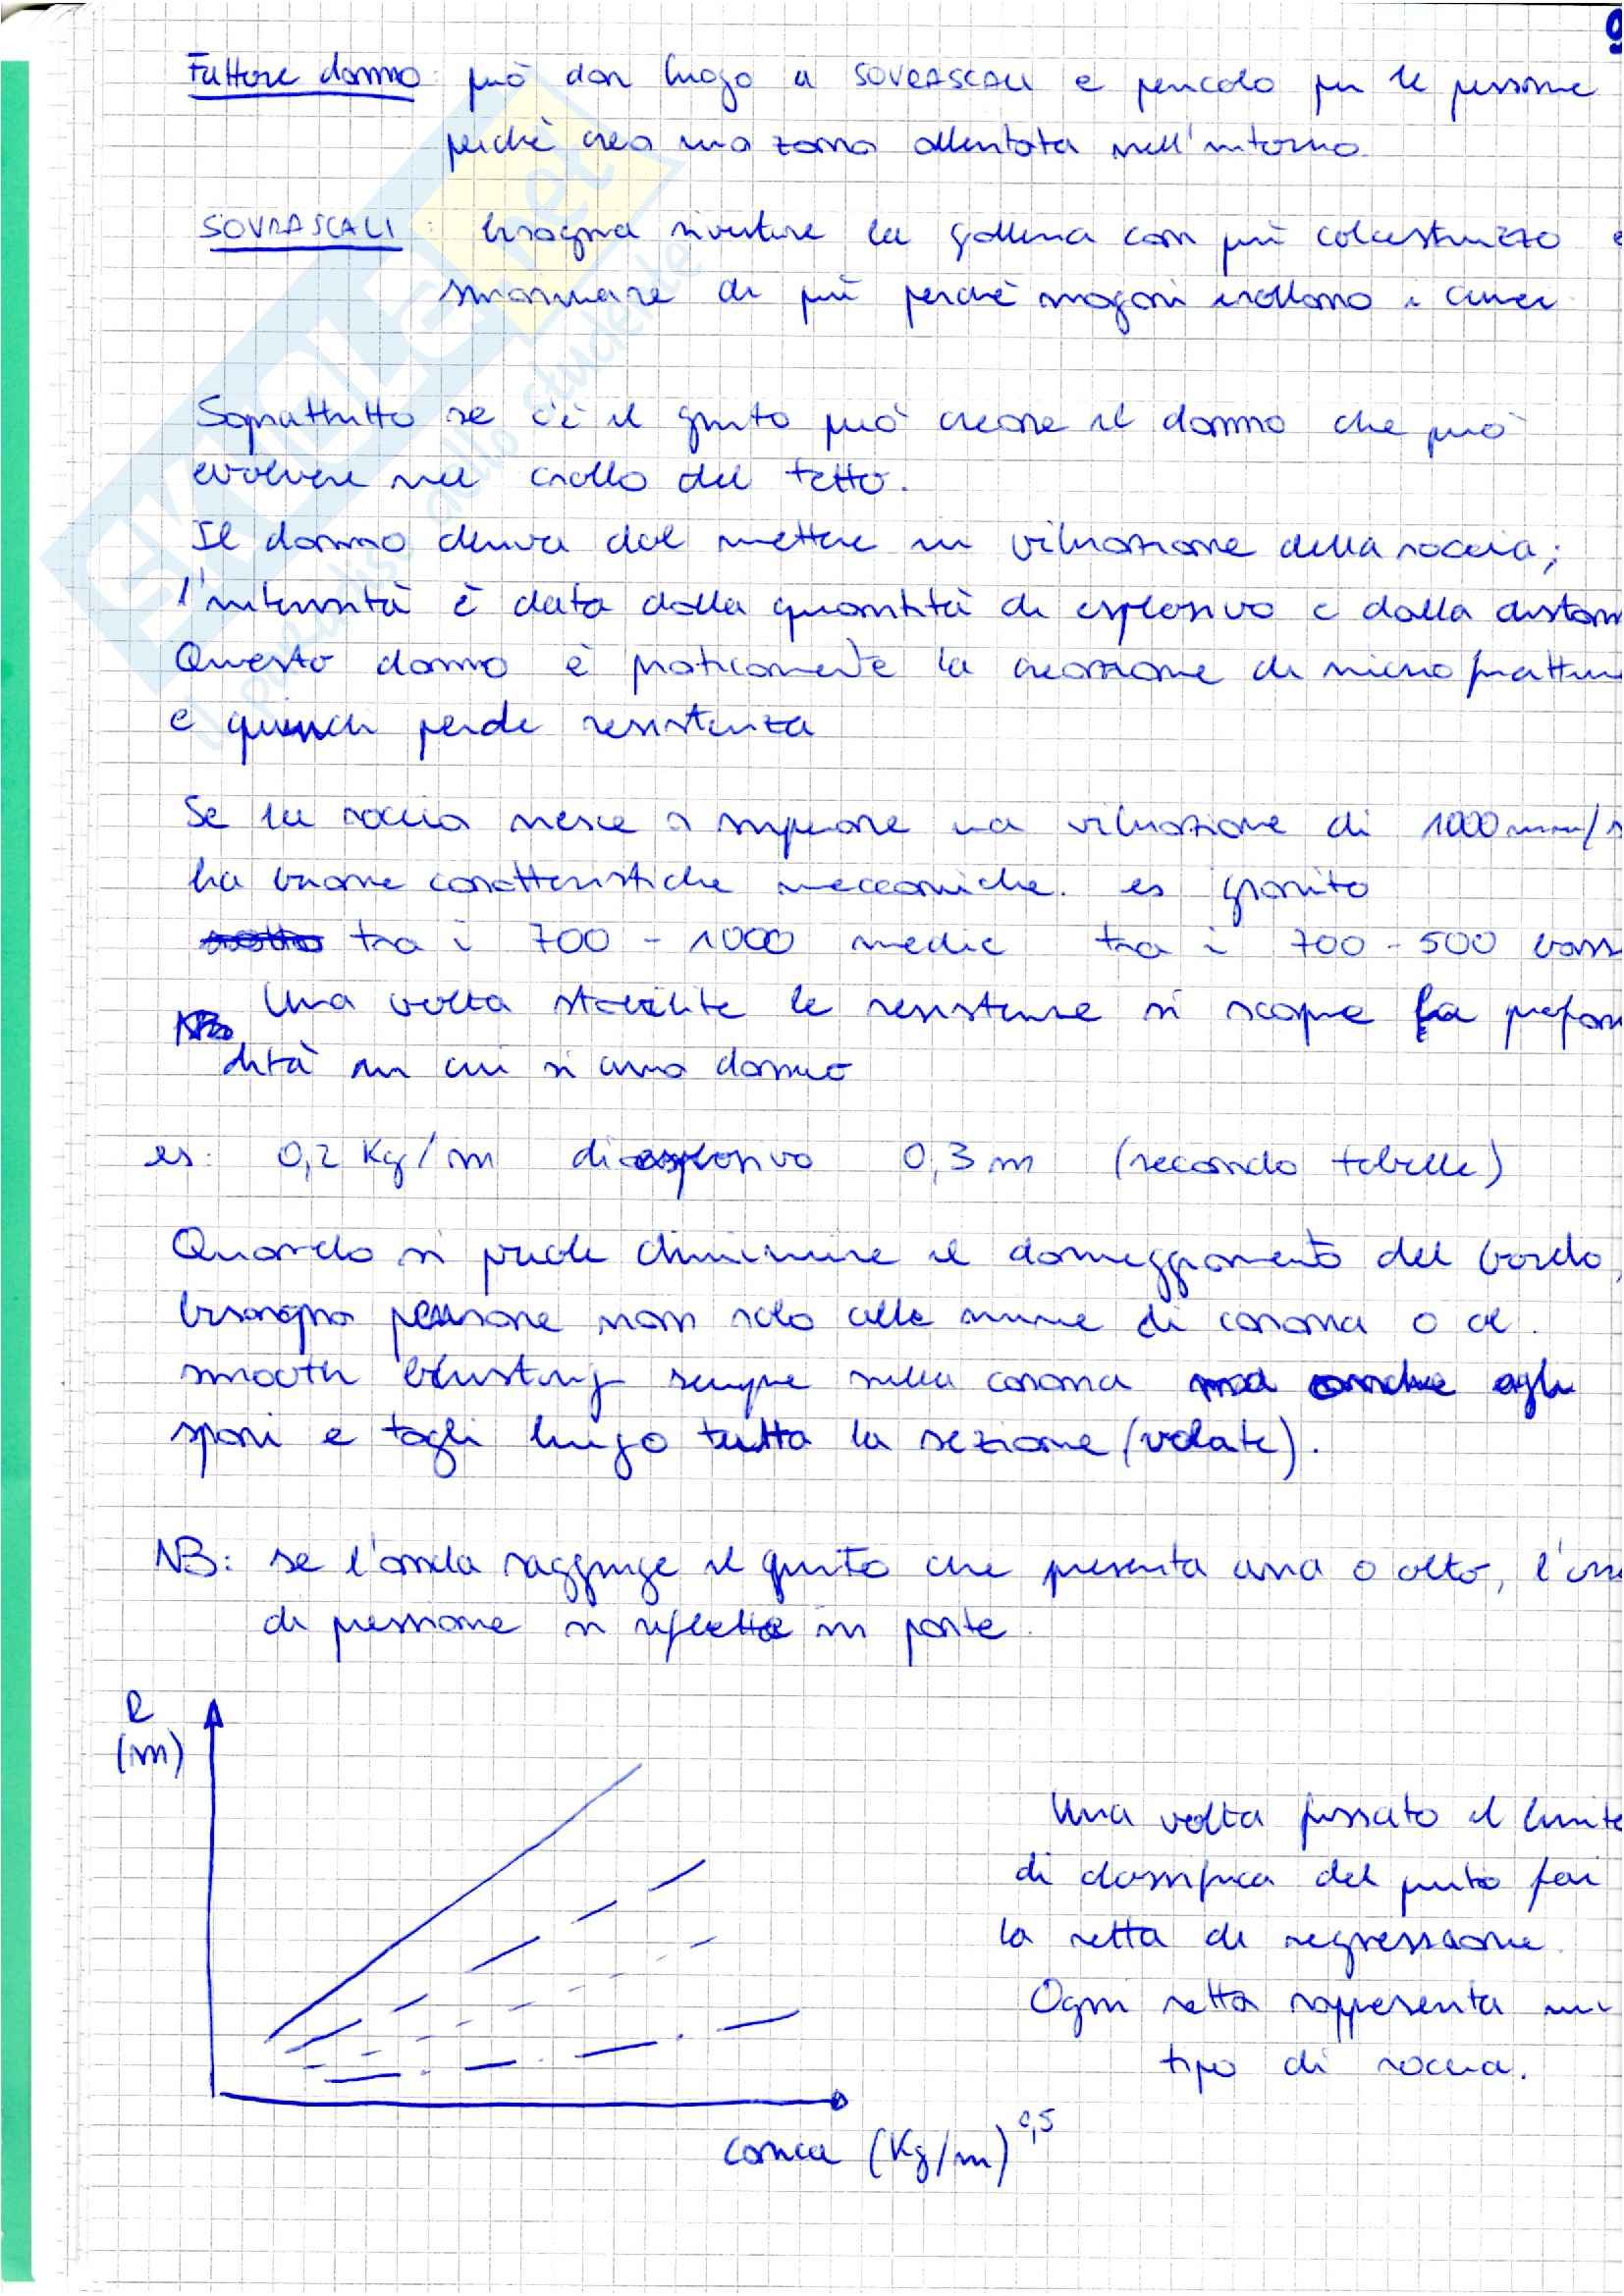 9
Fattore danno: può dar luogo a SOVRASCALI e pericolo per le persone
perchè crea una zona allentata nell'intorno.
SOVRASCALI: bisogna rivestire la galleria con più calcestruzzo e
smarinare di più perchè magari crollano i cunei
Soprattutto se c'è il giunto può creare il danno che può
evolvere nel crollo del tetto.
Il danno deriva dal mettere in vibrazione della roccia;
l'intensità è data dalla quantità di esplosivo e dalla distan
Questo danno è praticamente la creazione di micro frattur
e quindi perde resistenza
Se la roccia riesce a superare una vibrazione di 1000 mm/s
ha buone caratteristiche meccaniche. es granito
tra i 700 - 1000 medie tra i 700 - 500 bass
Una volta stabilite le resistenze si scopre la profon
dità in cui si avrà danno
es: 0,2 Kg/m di esplosivo 0,3 m (secondo tabelle)
Quando si vuole diminuire il danneggiamento del bordo,
bisogna pensare non solo alle mine di corona o al
smooth blasting sempre sulla corona ma anche agli
spari e tagli lungo tutta la sezione (volate).
NB: se l'onda raggiunge il giunto che presenta aria o altro, l'on
di pressione si riflette in parte.
R
(m)
Una volta fissato il limite
di classifica del punto fai
la retta di regressione.
Ogni retta rappresenta un
tipo di roccia.
carica (Kg/m)^0,5